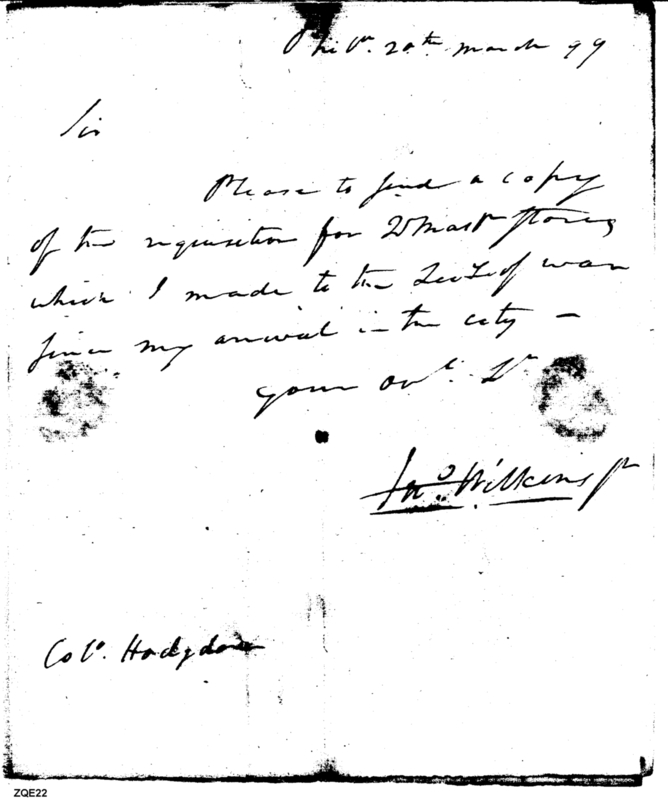 Phila. 20th March 99
Sir
Please to find a copy
of the requisition for Qr Mastr Stores
which I made to the Secy of war
since my arrival in the city —
your obt. Sr
Jno. Wilkins Jr
Colo. Hodgdon
ZQE22